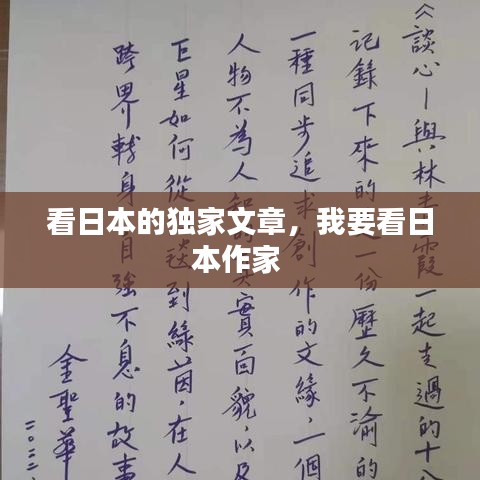 看日本的独家文章，我要看日
本作家
《談心—與林青霞一起走過的十八
記錄下來的一份歷久不渝的
一種同步追求創作的文緣，一個
人物不為人知的真實面貌，以及
巨星如何從毯到綠茵，在人
跨界轉身自強不息的故事
金聖華
二〇二二